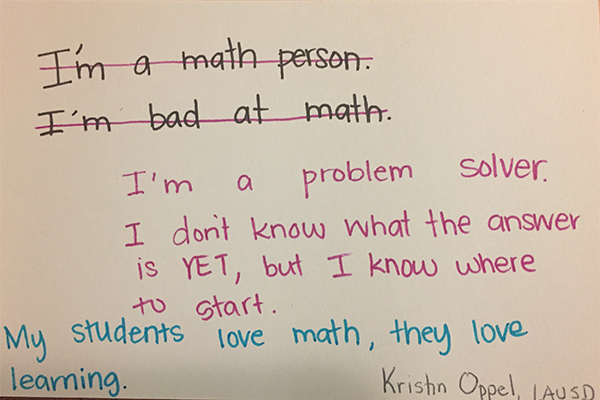 I'm a math person.
I'm bad at math.
I'm a problem solver.
I don't know what the answer
is YET, but I know where
to start.
My students love math, they love
learning.
Kristin Oppel, LAUSD